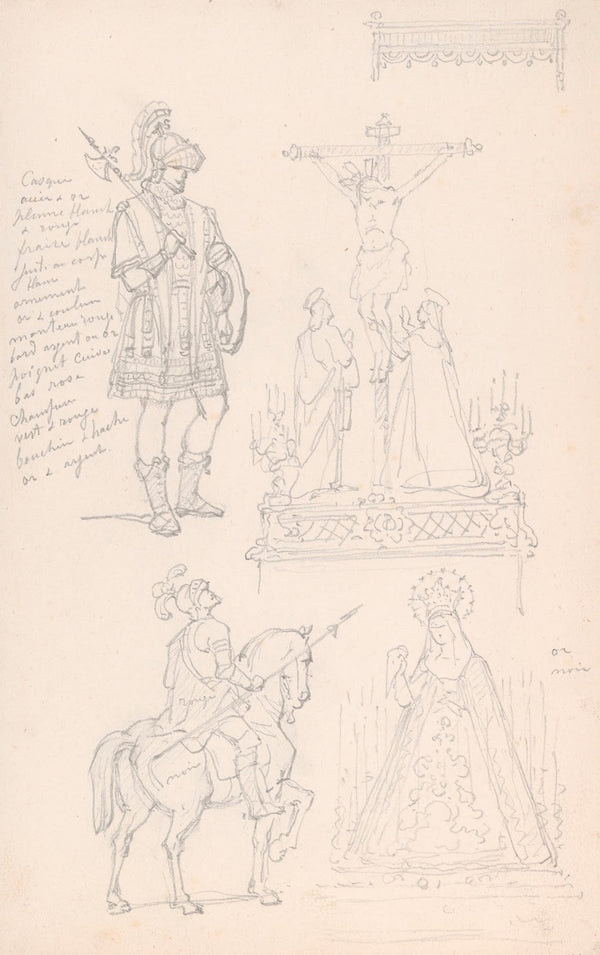 Casque
acier & or
plume blanch
& rouge
fraise blanch
just. au corps
blanc
ornement
or & couleur
manteau rouge
bord argent ou or
poignet Cuivre
bas rose
chaussure
vert & rouge
bouclier & hache
or & argent.
rouge
noir
or
noir